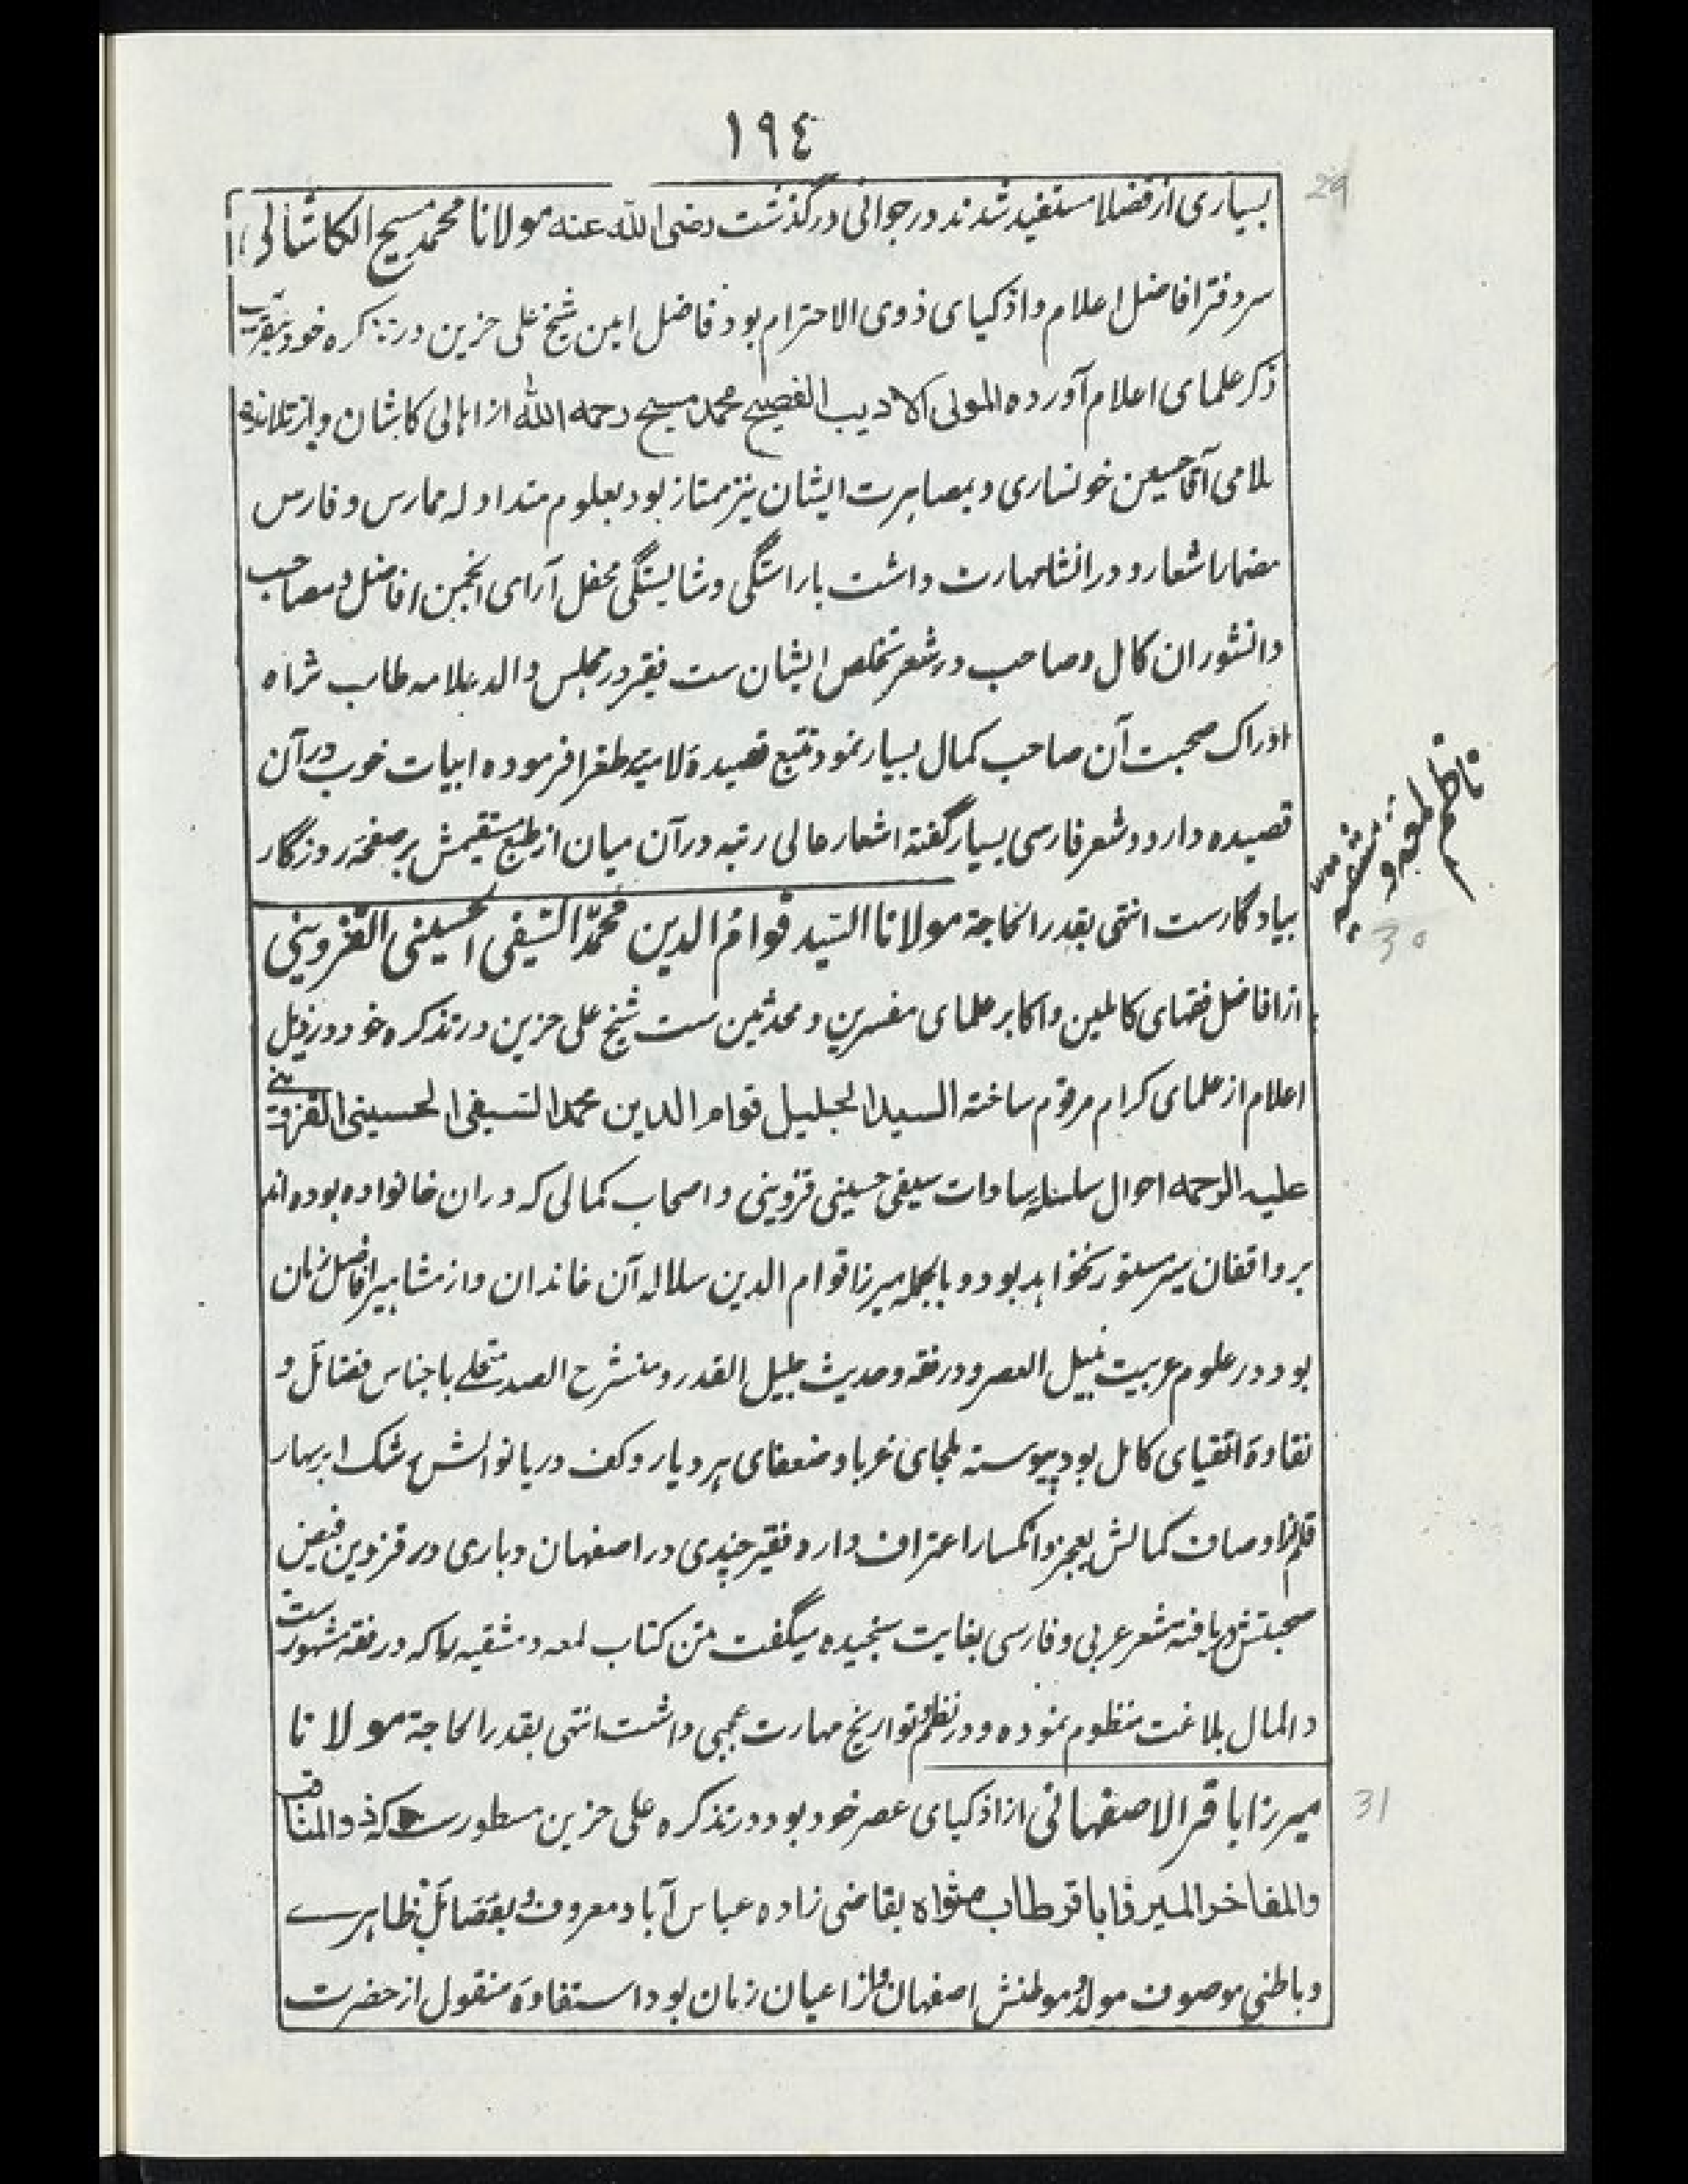 ١٩٤
29
بسیاری از فضلا مستفید شدند در جوانی درگذشت رضی الله عنه مولانا محمد مسیح الکاشانی
سر دفتر افاضل اعلام و اذکیای ذوی الاحترام بود فاضل امین شیخ علی حزین در تذکره خود بتقریب
ذکر علمای اعلام آورده المولی الادیب الفصیح محمد مسیح رحمه الله از اهالی کاشان و از تلامذهٔ
علامی آقا حسین خونساری و بمصاهرت ایشان نیز ممتاز بود بعلوم متداوله ممارس و فارس
مضمار اشعار و در انشا مهارت داشت باراستگی و شایستگی محفل آرای انجمن افاضل و مصاحب
دانشوران کامل و صاحب در شعر تخلص ایشان ست فقیر در مجلس والد علامه طاب ثراه
ادراک صحبت آن صاحب کمال بسیار نمود تتبع قصیدهٔ لامیه طغرا فرموده ابیات خوب در آن
قصیده دارد و شعر فارسی بسیار گفته اشعار عالی رتبه در آن میان از طبع مستقیمش بر صفحهٔ روزگار
ناظم لمعهٔ دمشقیه
30
بیادگارست انتهی بقدر الحاجة مولانا السّید قوام الدین محمّد السّیفی الحسینی القزوینی
از افاضل فقهای کاملین و اکابر علمای مفسرین و محدثین ست شیخ علی حزین در تذکره خود در ذیل
اعلام از علمای کرام مرقوم ساخته السید الجلیل قوام الدین محمد السیفی الحسینی القزوینے
علیه الرحمه احوال سلسله سادات سیفی حسینی قزوینی و اصحاب کمالی که دران خانواده بوده اند
بر واقفان سیر مستور نخواهد بود و بالجمله میرزا قوام الدین سلاله آن خاندان و از مشاهیر افاضل زمان
بود در علوم عربیت نبیل العصر و در فقه و حدیث جلیل القدر و منشرح الصدر متحلے باجناس فضائل و
نقاوهٔ اتقیای کامل بود پیوسته ملجای غربا و ضعفای هر دیار و کف دریا نوالش رشک ابر بهار
قلم از اوصاف کمالش بعجز و انکسار اعتراف دارد فقیر چندی در اصفهان و باری در قزوین فیض
صحبتش دریافته شعر عربی و فارسی بغایت سنجیده میگفت متن کتاب لمعه دمشقیه را که در فقه مشهورست
در کمال بلاغت منظوم نموده و در نظم تواریخ مهارت عجبی داشت انتهی بقدر الحاجة مولانا
31
میرزا باقر الاصفهانی از اذکیای عصر خود بود در تذکره علی حزین مسطورست که ذو المناقب
والمفاخر المیرزا باقر طاب مثواه بقاضی زاده عباس آباد معروف و بفضائل ظاهرے
و باطنی موصوف مولد و موطنش اصفهان و از اعیان زمان بود استفادهٔ منقول از حضرت